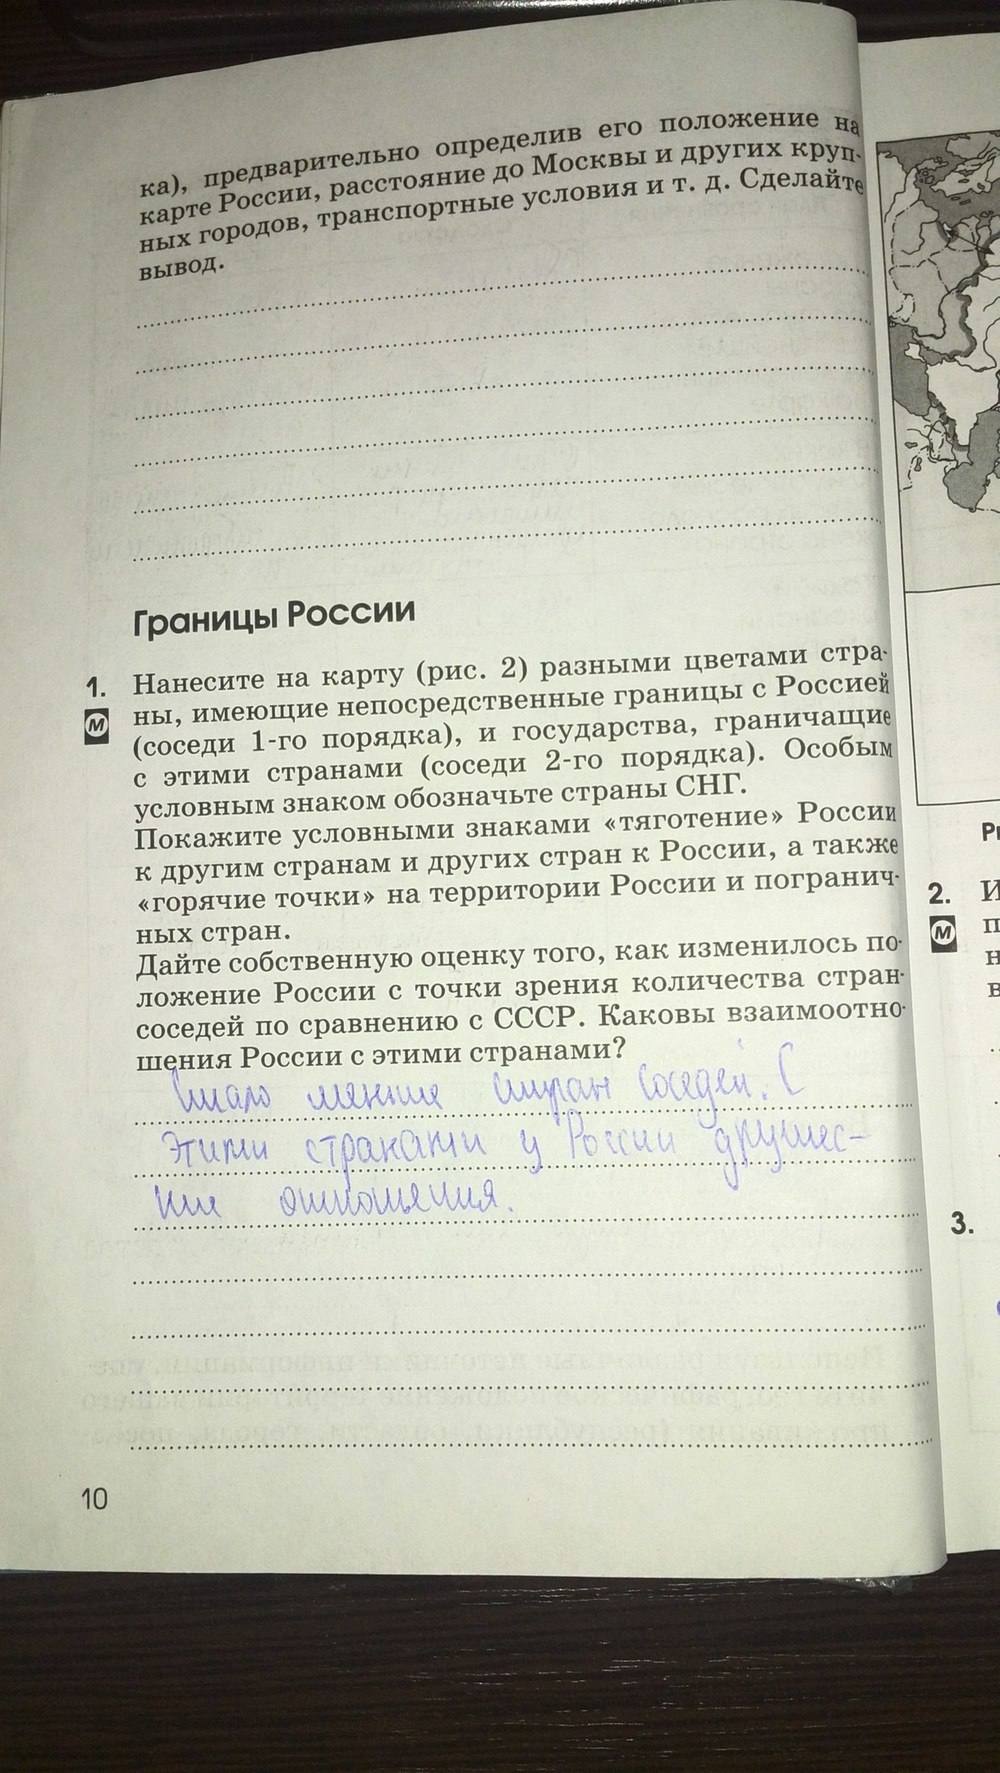 ка), предварительно определив его положение на
карте России, расстояние до Москвы и других круп-
ных городов, транспортные условия и т. д. Сделайте
вывод.
Границы России
1. Нанесите на карту (рис. 2) разными цветами стра-
М ны, имеющие непосредственные границы с Россией
(соседи 1-го порядка), и государства, граничащие
с этими странами (соседи 2-го порядка). Особым
условным знаком обозначьте страны СНГ.
Покажите условными знаками «тяготение» России
к другим странам и других стран к России, а также
«горячие точки» на территории России и погранич-
ных стран.
Дайте собственную оценку того, как изменилось по-
ложение России с точки зрения количества стран-
соседей по сравнению с СССР. Каковы взаимоотно-
шения России с этими странами?
Стало меньше стран соседей. С
этими странами у России дружес-
кие отношения.
10
2. И
М п
н
в
3.